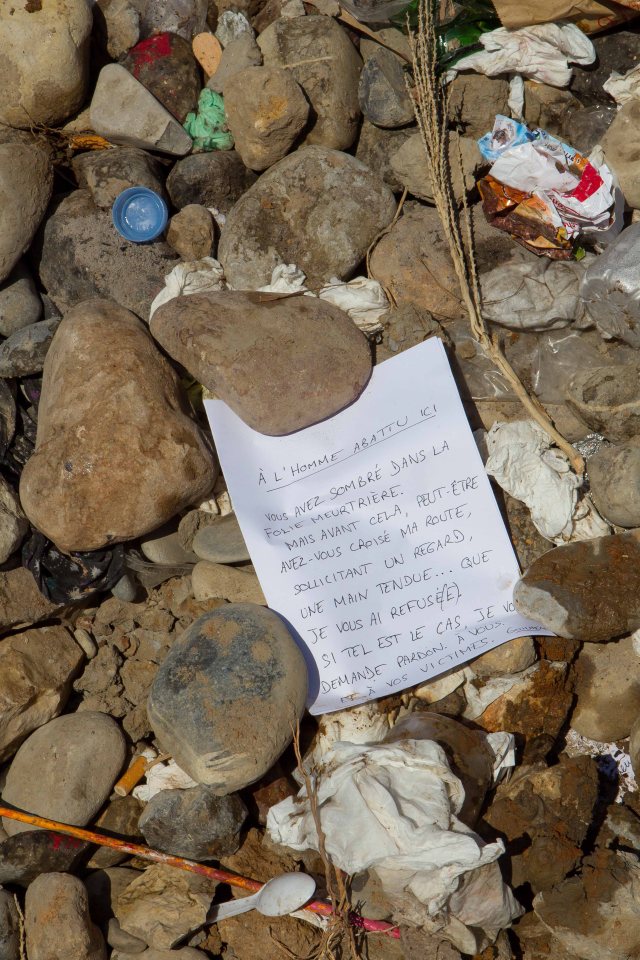 À L'HOMME ABATTU ICI
VOUS AVEZ SOMBRÉ DANS LA
FOLIE MEURTRIÈRE.
MAIS AVANT CELA, PEUT-ÊTRE
AVEZ-VOUS CROISÉ MA ROUTE,
SOLLICITANT UN REGARD,
UNE MAIN TENDUE... QUE
JE VOUS AI REFUSÉ(E).
SI TEL EST LE CAS, JE VO
DEMANDE PARDON. À VOUS.
ET À VOS VICTIMES.